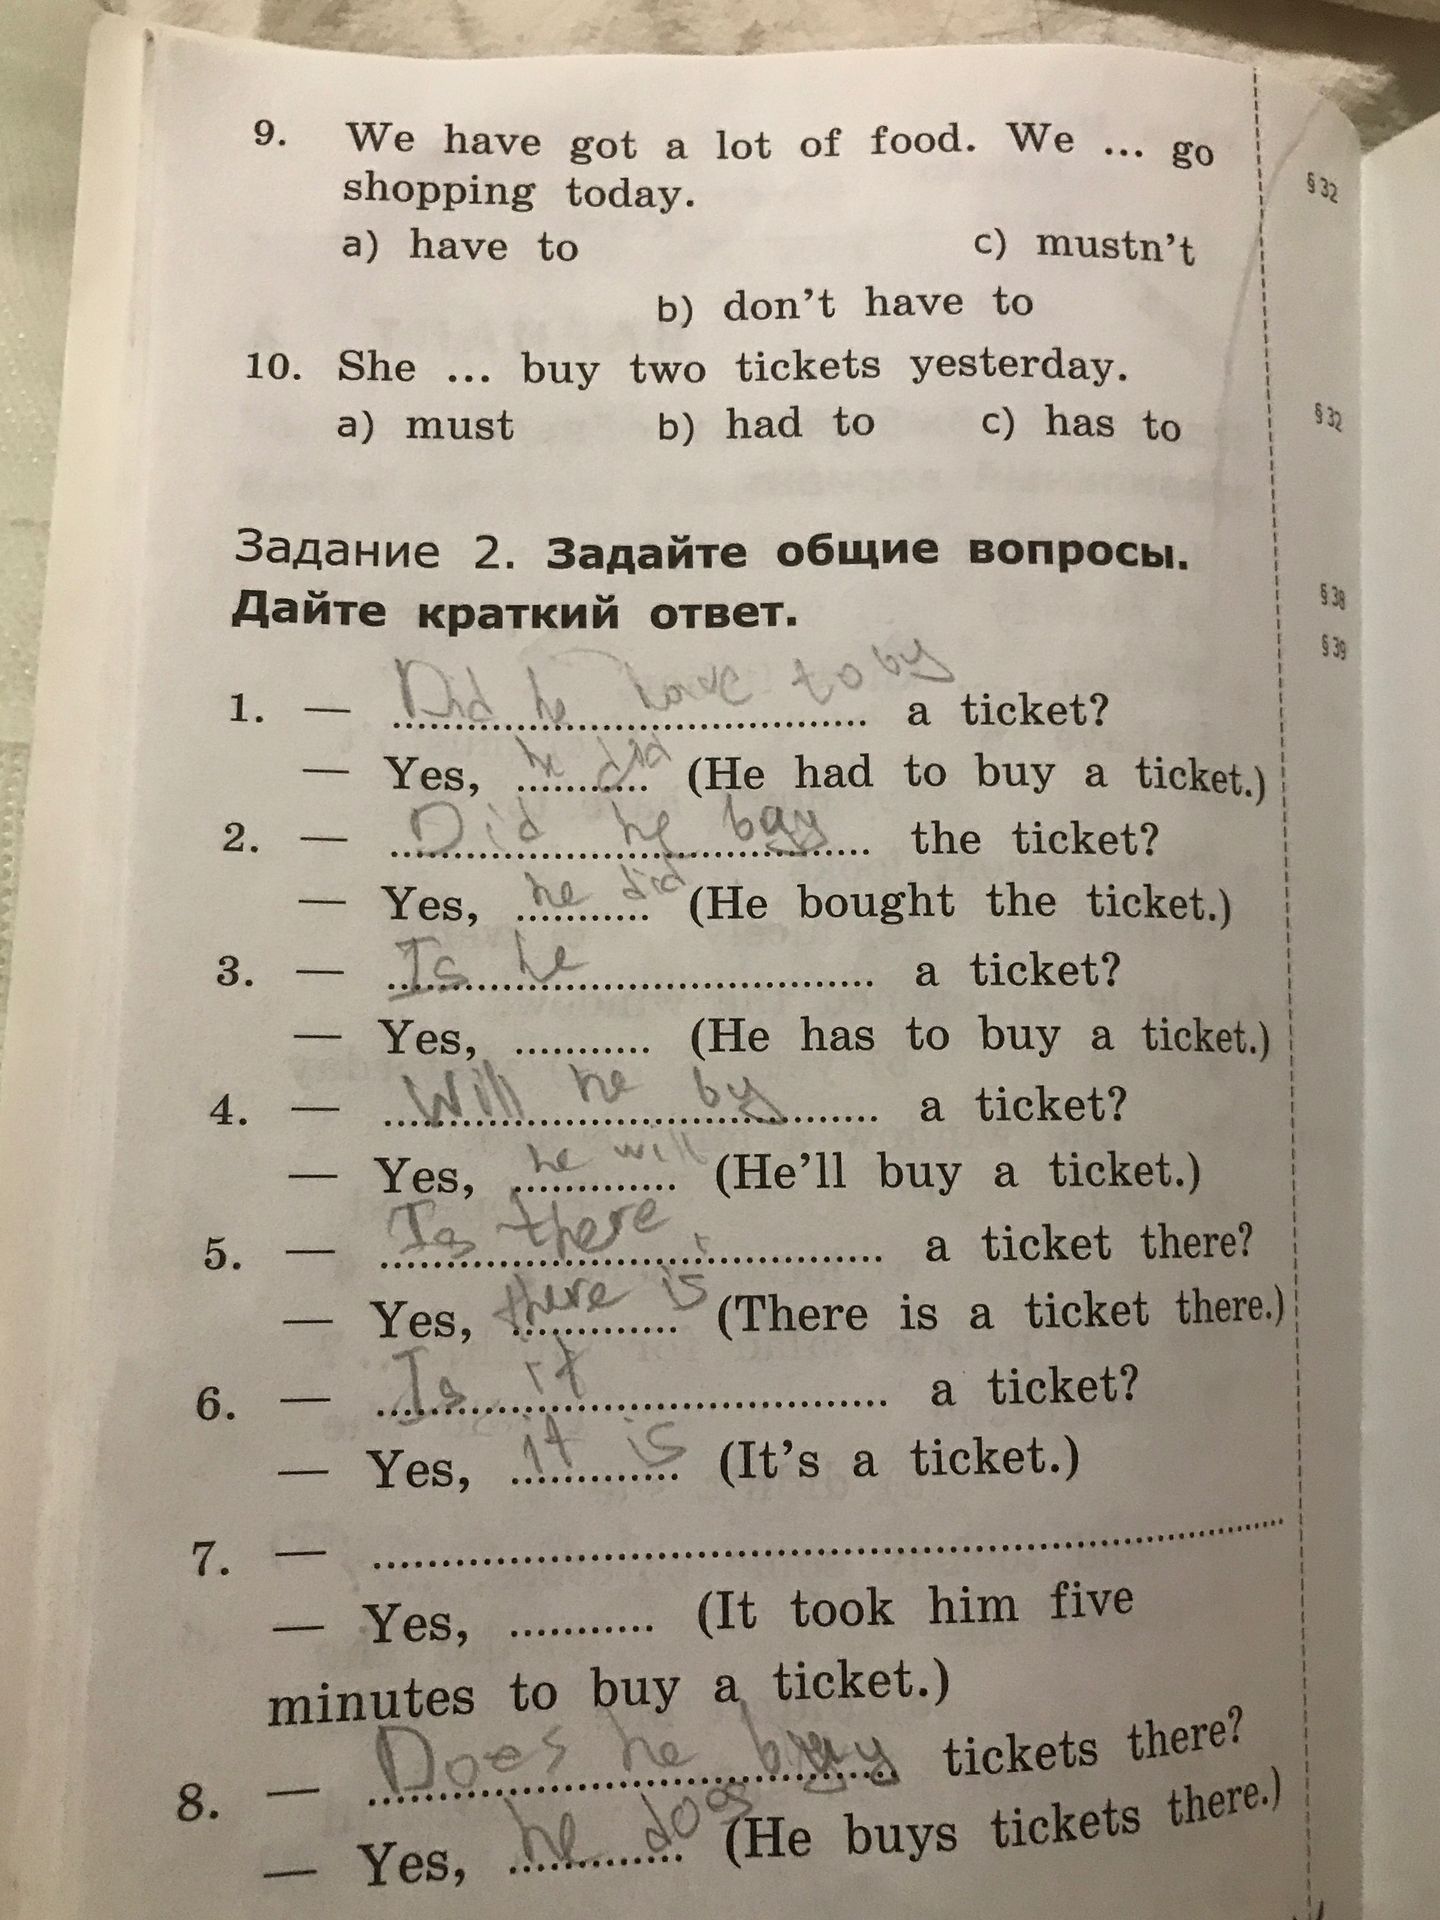 9. We have got a lot of food. We ... go
shopping today.
a) have to c) mustn't
b) don't have to
10. She ... buy two tickets yesterday.
a) must b) had to c) has to
§ 32
§ 32
Задание 2. Задайте общие вопросы.
Дайте краткий ответ.
§ 38
§ 39
1. — Did he have to by a ticket?
— Yes, he did (He had to buy a ticket.)
2. — Did he bay the ticket?
— Yes, he did (He bought the ticket.)
3. — Is he a ticket?
— Yes, ........... (He has to buy a ticket.)
4. — Will he by a ticket?
— Yes, he will (He'll buy a ticket.)
5. — Is there a ticket there?
— Yes, there is (There is a ticket there.)
6. — Is it a ticket?
— Yes, it is (It's a ticket.)
7. — ...........
— Yes, ........... (It took him five
minutes to buy a ticket.)
8. — Does he tickets there?
— Yes, he does (He buys tickets there.)